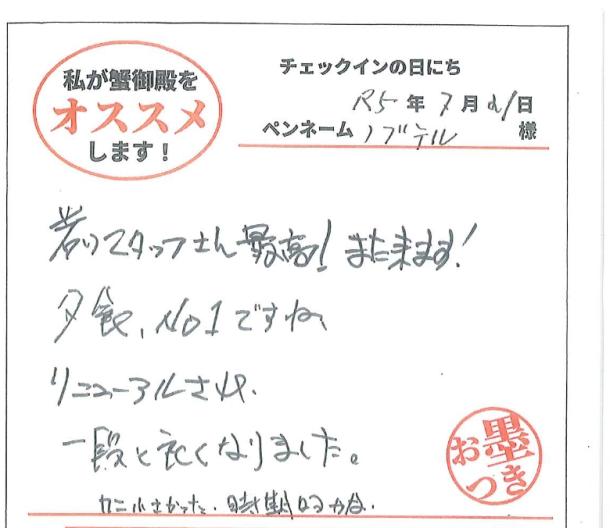 私が蟹御殿を
オススメ
します！
チェックインの日にち
R5年7月21日
ペンネーム ノブテル 様
若いスタッフさん最高！また来ます！
夕食、No1ですね
リニューアルされ、
一段と良くなりました。
カニ小さかった、時期的かな、
お墨つき